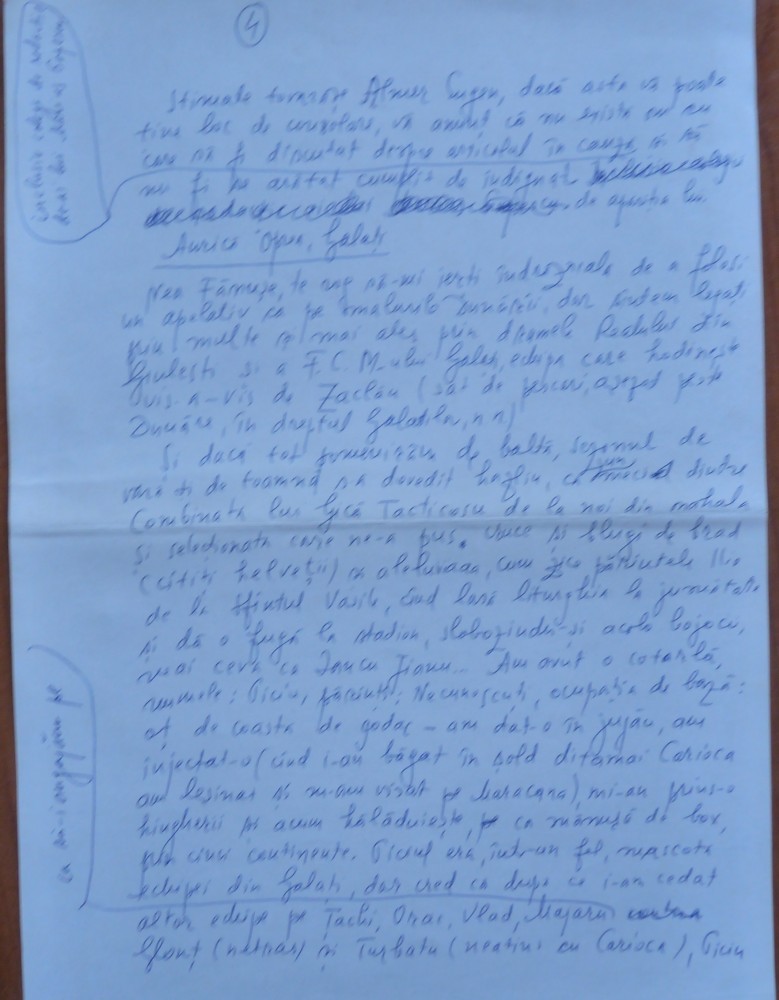 4
Stimate tovarășe Almer Eugen, dacă asta vă poate
ține loc de consolare, vă anunț că nu există om cu
care să fi discutat despre articolul în cauză și să
nu fi se arătat cumplit de indignat
de apariția lui.
Aurica Oprea, Galați
Nea Fănușe, te rog să-mi ierți îndrăzneala de a folosi
un apelativ ca pe malurile Dunării, dar suntem legați
prin multe și mai ales prin dramele Rapidului din
Giulești și a F.C.M.-ului Galați, echipa care hodinește
vis-a-vis de Zaclău (sat de pescari, așezat peste
Dunăre, în dreptul Galațilui, n n)
Și dacă tot pomenirăm de baltă, sezonul de
vară și de toamnă s-a dovedit hazliu, ca un meci dintre
Combinata lui Lică Tacticosu de la noi din mahala
și selecționata care ne-a pus cruce și slugi de brad
(citiți helveții) ca aleluvaaa, cum zice părintele Ilie
de la Sfintul Vasile, cînd lasă liturghia la jumătate
și dă o fugă la stadion, slobozindu-și acolo bojocu,
mai ceva ca Iancu Jianu... Am avut o cotarlă,
numele: Piciu, părinți: Necunoscuți, ocupația de bază:
of de coasta de godac – am dat-o în jujău, am
injectat-o (cînd i-au băgat în șold ditamai Carioca
am leșinat și m-am visat pe Maracana), mi-au prins-o
hingherii și acum hălăduiește, ca mănușă de box,
prin cinci continente. Piciul era, într-un fel, mascota
echipei din Galați, dar cred că după ce i-am cedat
altor echipe pe Tachi, Orac, Vlad, Majaru
Sfonț (netras) și Turbatu (neatins cu Carioca), Piciu
inclusiv colegi de redacție
ca să-i angajăm pe